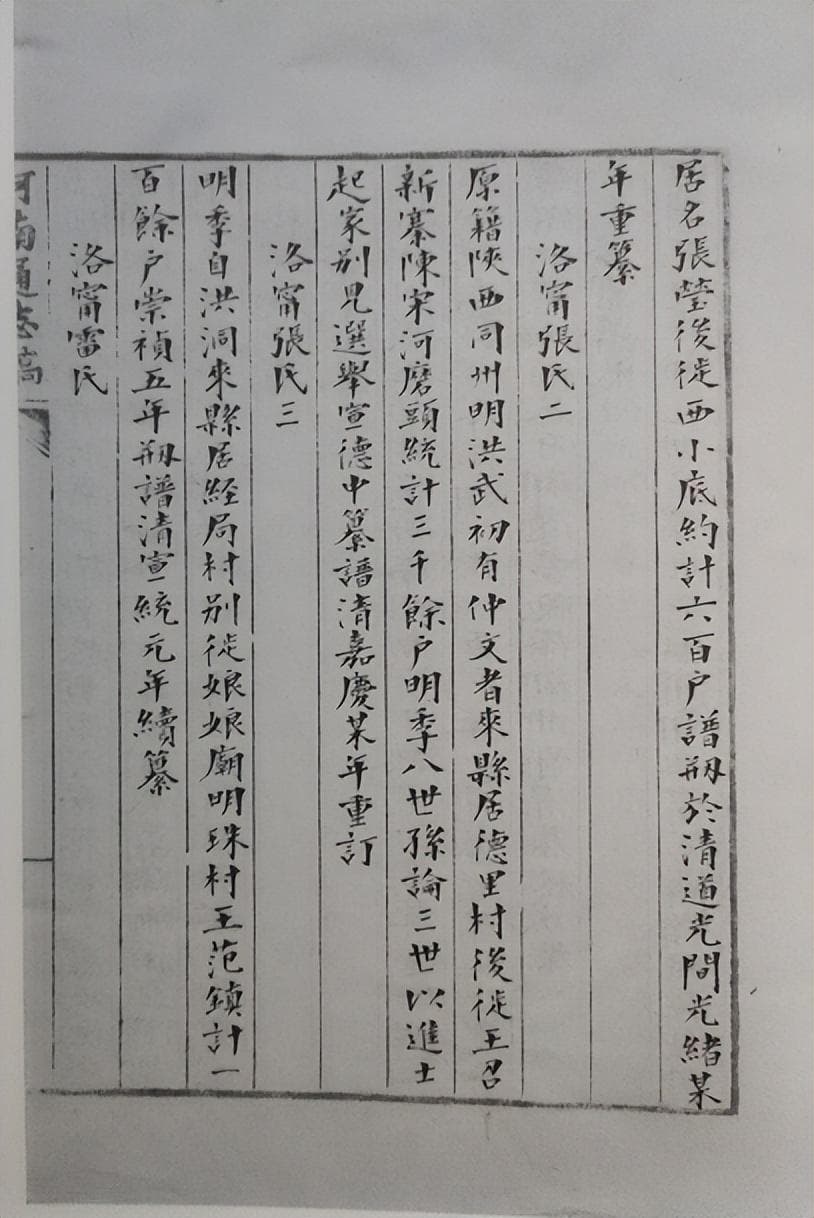 居名張瑩後徙西小底約計六百戶譜剏於清道光間光緒某
年重纂
洛甯張氏二
原籍陝西同州明洪武初有仲文者來縣居德里村後徙王召
新寨陳宋河磨頭統計三千餘戶明季八世孫論三世以進士
起家別見選舉宣德中纂譜清嘉慶某年重訂
洛甯張氏三
明季自洪洞來縣居經局村別徙娘娘廟明珠村王范鎮計一
百餘戶崇禎五年剏譜清宣統元年續纂
洛甯雷氏
河南通志稿